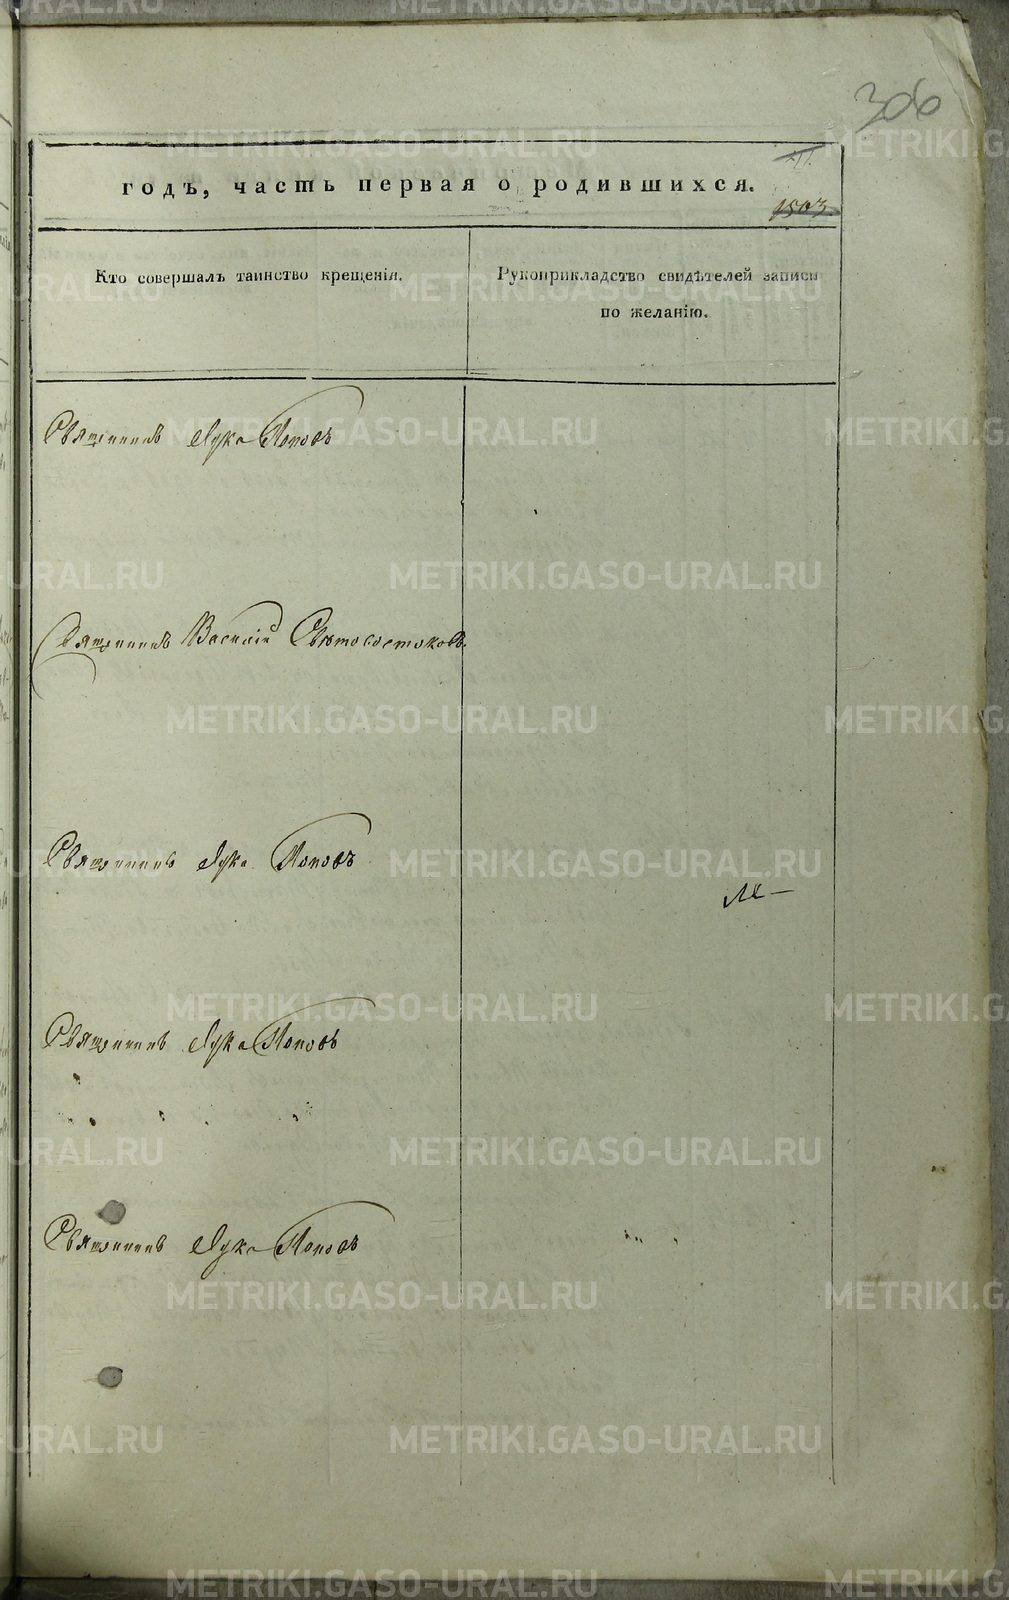 306
годъ, часть первая о родившихся.
1503
Кто совершалъ таинство крещенія.
Рукоприкладство свидѣтелей записи
по желанію.
Священникъ Лука Поповъ
Священникъ Василій Свѣтовостоковъ.
Священникъ Лука Поповъ
Священникъ Лука Поповъ
Священникъ Лука Поповъ
METRIKI.GASO-URAL.RU